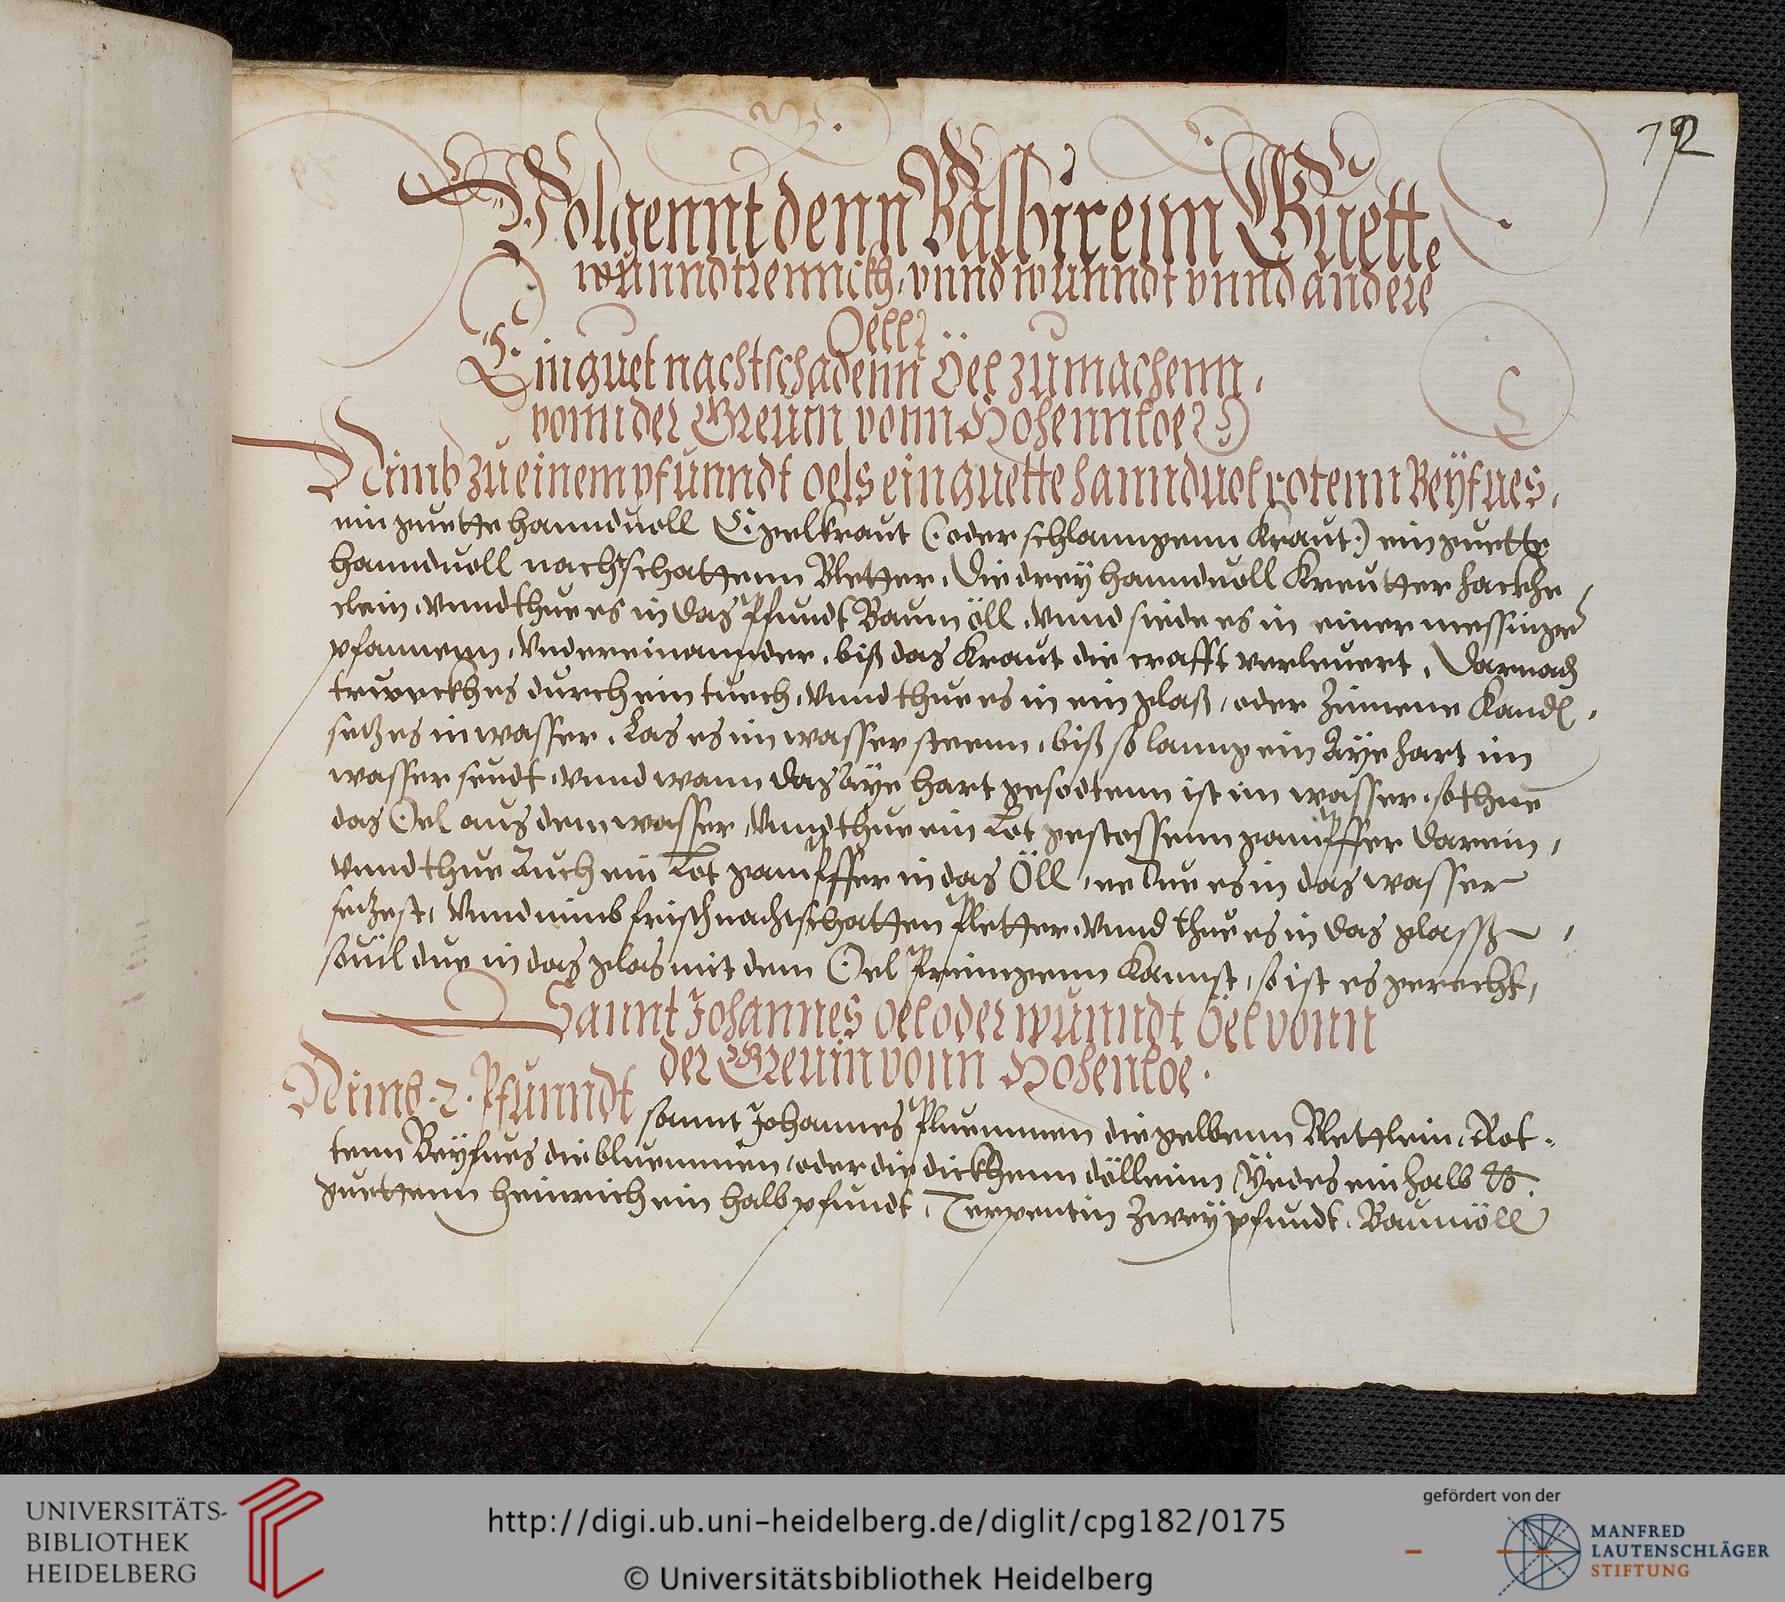 192
Volgennt denn Balbirernn Guette
wunndtrennckh, vnnd wunndt vnnd andere
Oell
Ein guet nachtschadenn Öel zumachenn,
vonn der Greuin vonn Hohennloe
Nimb zu einem pfunndt oels ein guette hannduol rotenn Beyfues,
ein guette hannduoll Eigelkraut (oder schlanngenn Kraut) ein guette
hannduoll nachtschattenn Bletter, Die drey hannduoll Kreutter hackhe
clein, vnnd thue es in das Pfundt Baum öll, vnnd siede es in einer messinge
pfannenn, vndereinannder, biß das Kraut die crafft verleuert, Darnach
truckhes durch ein tuech, vnnd thue es in ein glaß, oder Zinnene Kandl,
setz es in wasser, Las es im wasser steenn, biß so lanng ein Aye hart im
wasser seudt, vnnd wann das Aye hart gesodtenn ist im wasser, so thue
das Oel aus dem wasser, vnnd thue ein Lot gestossenn gampffer darein,
vnnd thue Auch ein Lot gampffer in das Öll, ee due es in das wasser
setzest, Vnnd nimb frisch nachtschatten Pletter, vnnd thue es in das glass
souil due in das glas mit dem Oel Pringenn Kannst, so ist es gerecht,
Sannt Johannes oel oder wunndt Öel vonn
der Greuin vonn Hohenloe.
Nimb .2. Pfunndt sannt Johannes Pluemmen die gelbenn Bletlein, Rot-
tenn Beyfues die bluemmen, oder die dickhenn döllenn, Yedes ein halb ℔.
guettenn Heinrich ein halb pfundt, Terpentin Zwey pfundt, Baumöll
UNIVERSITÄTS-
BIBLIOTHEK
HEIDELBERG
http://digi.ub.uni-heidelberg.de/diglit/cpg182/0175
© Universitätsbibliothek Heidelberg
gefördert von der
MANFRED
LAUTENSCHLÄGER
STIFTUNG